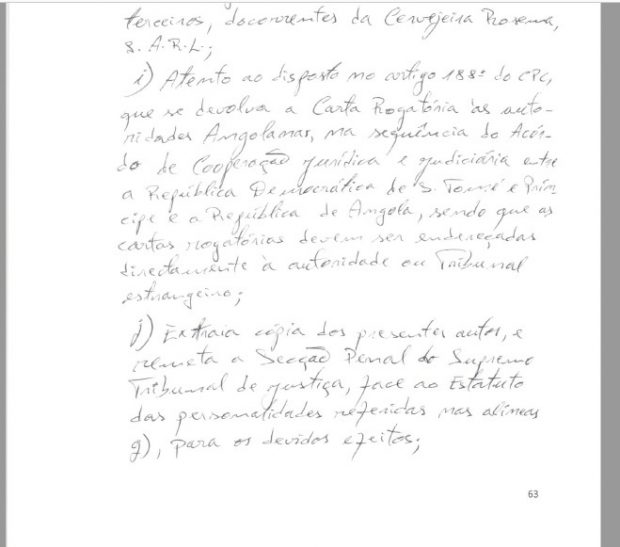 terceiros, decorrentes da Cervejeira Rosema,
S.A.R.L.;
i) Atento ao disposto no artigo 188º do CPC,
que se devolva a Carta Rogatória às auto-
ridades Angolanas, na sequência do Acór-
do de Cooperação jurídica e judiciária entre
a República Democrática de S. Tomé e Prín-
cipe e a República de Angola, sendo que as
cartas rogatórias devem ser endereçadas
directamente à autoridade ou Tribunal
estrangeiro;
j) Extraia cópia dos presentes autos, e
remeta a Secção Penal do Supremo
Tribunal de justiça, face ao Estatuto
das personalidades referidas nas alíneas
g), para os devidos efeitos;
63